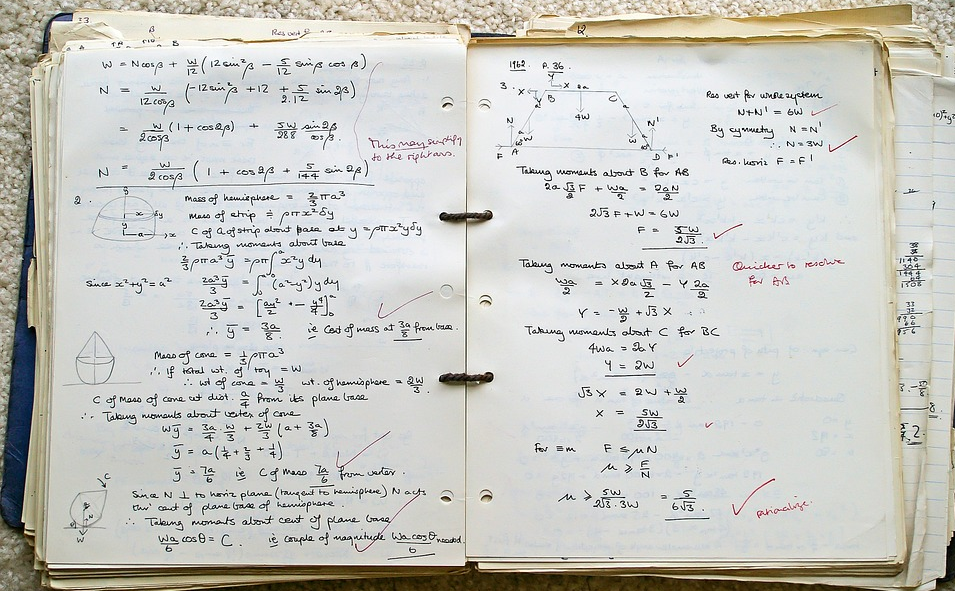 33
W = N cosβ + W/12 (12 sin²β - 5/12 sinβ cosβ)
N = W/12cosβ (-12 sin²β + 12 + 5/2.12 sin 2β)
= W/2cosβ (1 + cos2β) + 5W/288 sin2β/cosβ.
This may simplify
to the right ans.
N = W/2cosβ (1 + cos2β + 5/144 sin2β)
2.
Mass of hemisphere = 2/3 πa³
mass of strip ≡ ρπx²δy
C of G of strip about base at y = ρπx²yδy
∴ Taking moments about base
2/3 ρπa³ȳ = ρπ∫x²y dy
Since x²+y²=a² 2a³ȳ/3 = ∫₀ᵃ (a²-y²) y dy
2a³ȳ/3 = [ay²/2 + - y⁴/4]₀ᵃ
∴ ȳ = 3a/8. ie Cent of mass at 3a/8 from base.
Mass of cone = 1/3 ρπa³
∴ If total wt. of toy = W
∴ wt of cone = W/3 wt. of hemisphere = 2W/3.
C of Mass of cone at dist. a/4 from its plane base
∴ Taking moments about vertex of cone
Wȳ = 3a/4 . W/3 + 2W/3 (a + 3a/8)
ȳ = a(1/4 + 2/3 + 1/4)
ȳ = 7a/6 ie C of mass 7a/6 from vertex.
Since N ⊥ to horiz plane (tangent to hemisphere) N acts
thro' cent of plane base of hemisphere.
∴ Taking moments about cent of plane base
Wa/6 cosθ = C. ie couple of magnitude Wa cosθ/6 needed.
12.
1962 P. 36
3.
Y X 2a
X B C
4W
N W W N'
F A D F'
Res vert for whole system
N+N' = 6W
By symmetry N = N'
∴ N = 3W
Res. horiz F = F'
Taking moments about B for AB
2a √3/2 F + Wa/2 = 2aN/2
2√3 F + W = 6W
F = 5W/2√3.
Taking moments about A for AB
Quicker to resolve
for AB
Wa/2 = X 2a √3/2 - Y 2a/2
Y = -W/2 + √3 X
Taking moments about C for BC
4Wa = 2aY
Y = 2W
√3 X = 2W + W/2
X = 5W/2√3
For ≡m F ≤ μN
μ ≥ F/N
μ ≥ 5W/2√3.3W = 5/6√3.
rationalize.